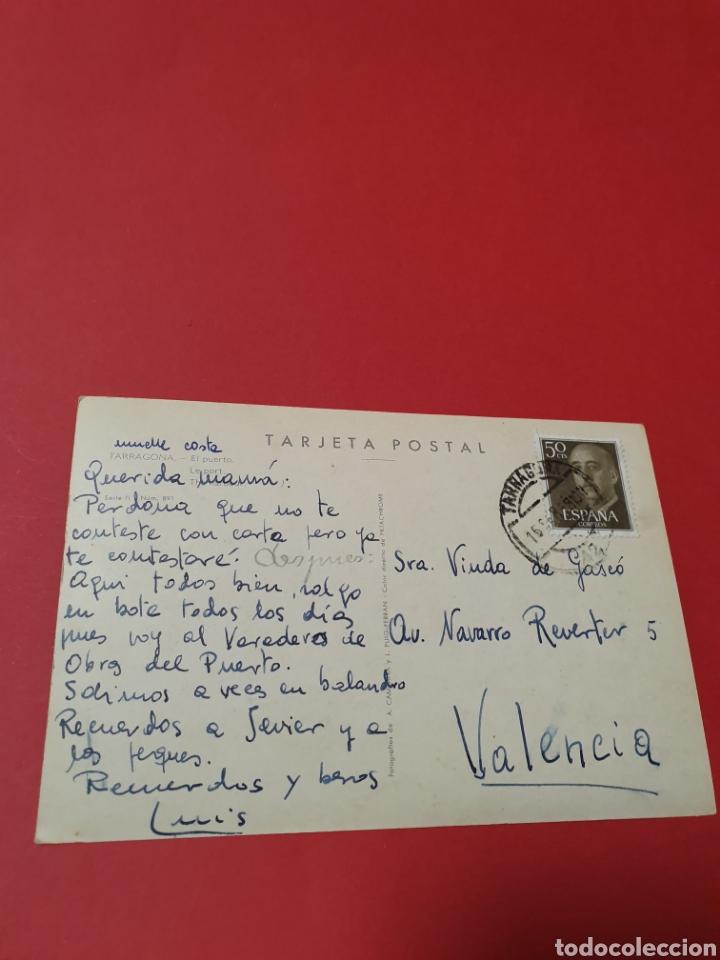 muelle costa
TARRAGONA. - El puerto.
Le port.
Serie II Núm. 891
TARJETA POSTAL
Querida mamá:
Perdona que no te
conteste con carta pero ya
te contestaré. despues.
Aqui todos bien, salgo
en bote todos los días
pues voy al Varadero de
Obra del Puerto.
Salimos a veces en balandro
Recuerdos a Javier y a
los peques.
Recuerdos y besos
Luis
Fotografías de A. Y L. PUIG-FERRAN - Color directo de FETACHROME
50
CTS
ESPAÑA
CORREOS
TARRAGONA
Sra. Viuda de Gascó
Av. Navarro Reverter 5
Valencia
todocoleccion